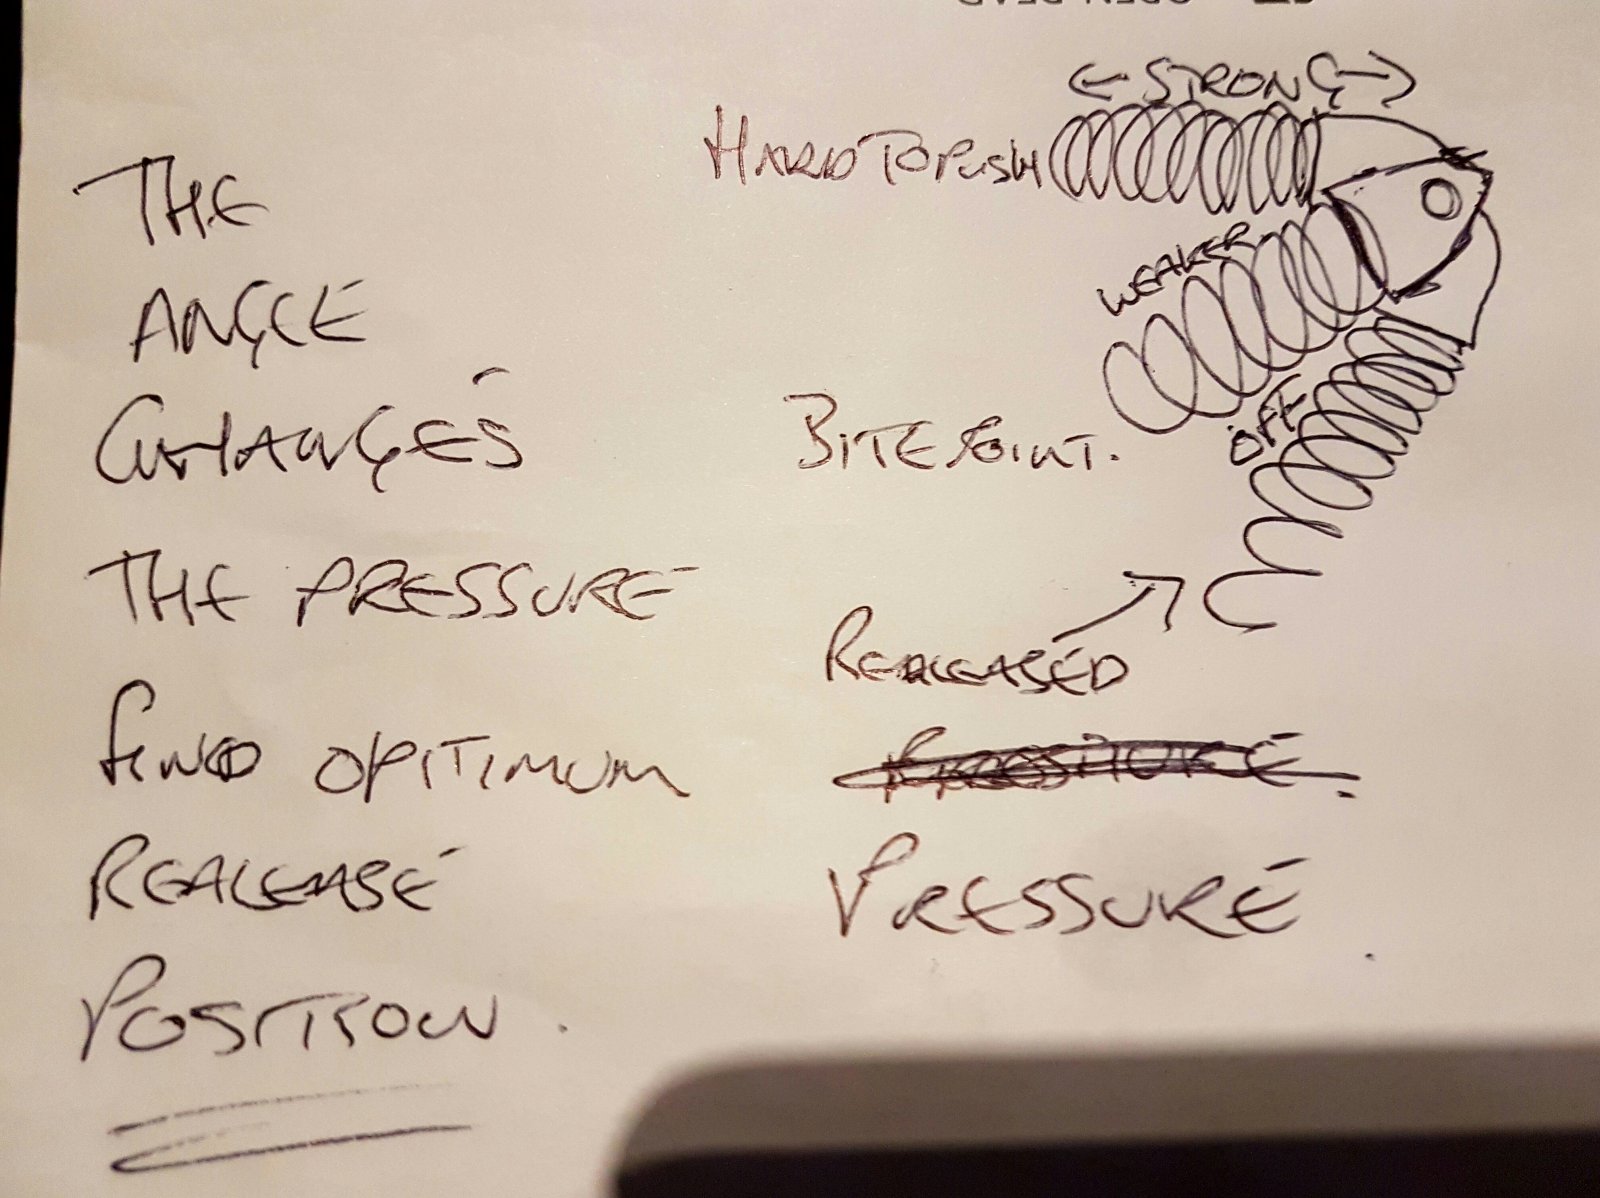 THE
ANGLE
CHANGES
THE PRESSURE
FIND OPITIMUM
REALEASE
POSITION.
← STRONG →
HARD TO PUSH
WEAKER
BITE POINT.
OFF
REALEASED
PRESSURE